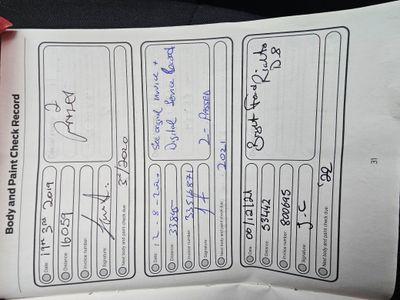 Body and Paint Check Record
Date 19th 3rd 2019
Distance 16059
Invoice number
Signature
Next body and paint check due 3rd/2020
2
Date 12-8-22
Distance 33845
Invoice number 33516871
Signature
Next body and paint check due 2021
See original invoice +
Digital Service Record
2 - PASSED
Date 06/12/21
Distance 53462
Invoice number 800695
Signature J.C
Next body and paint check due '22
31